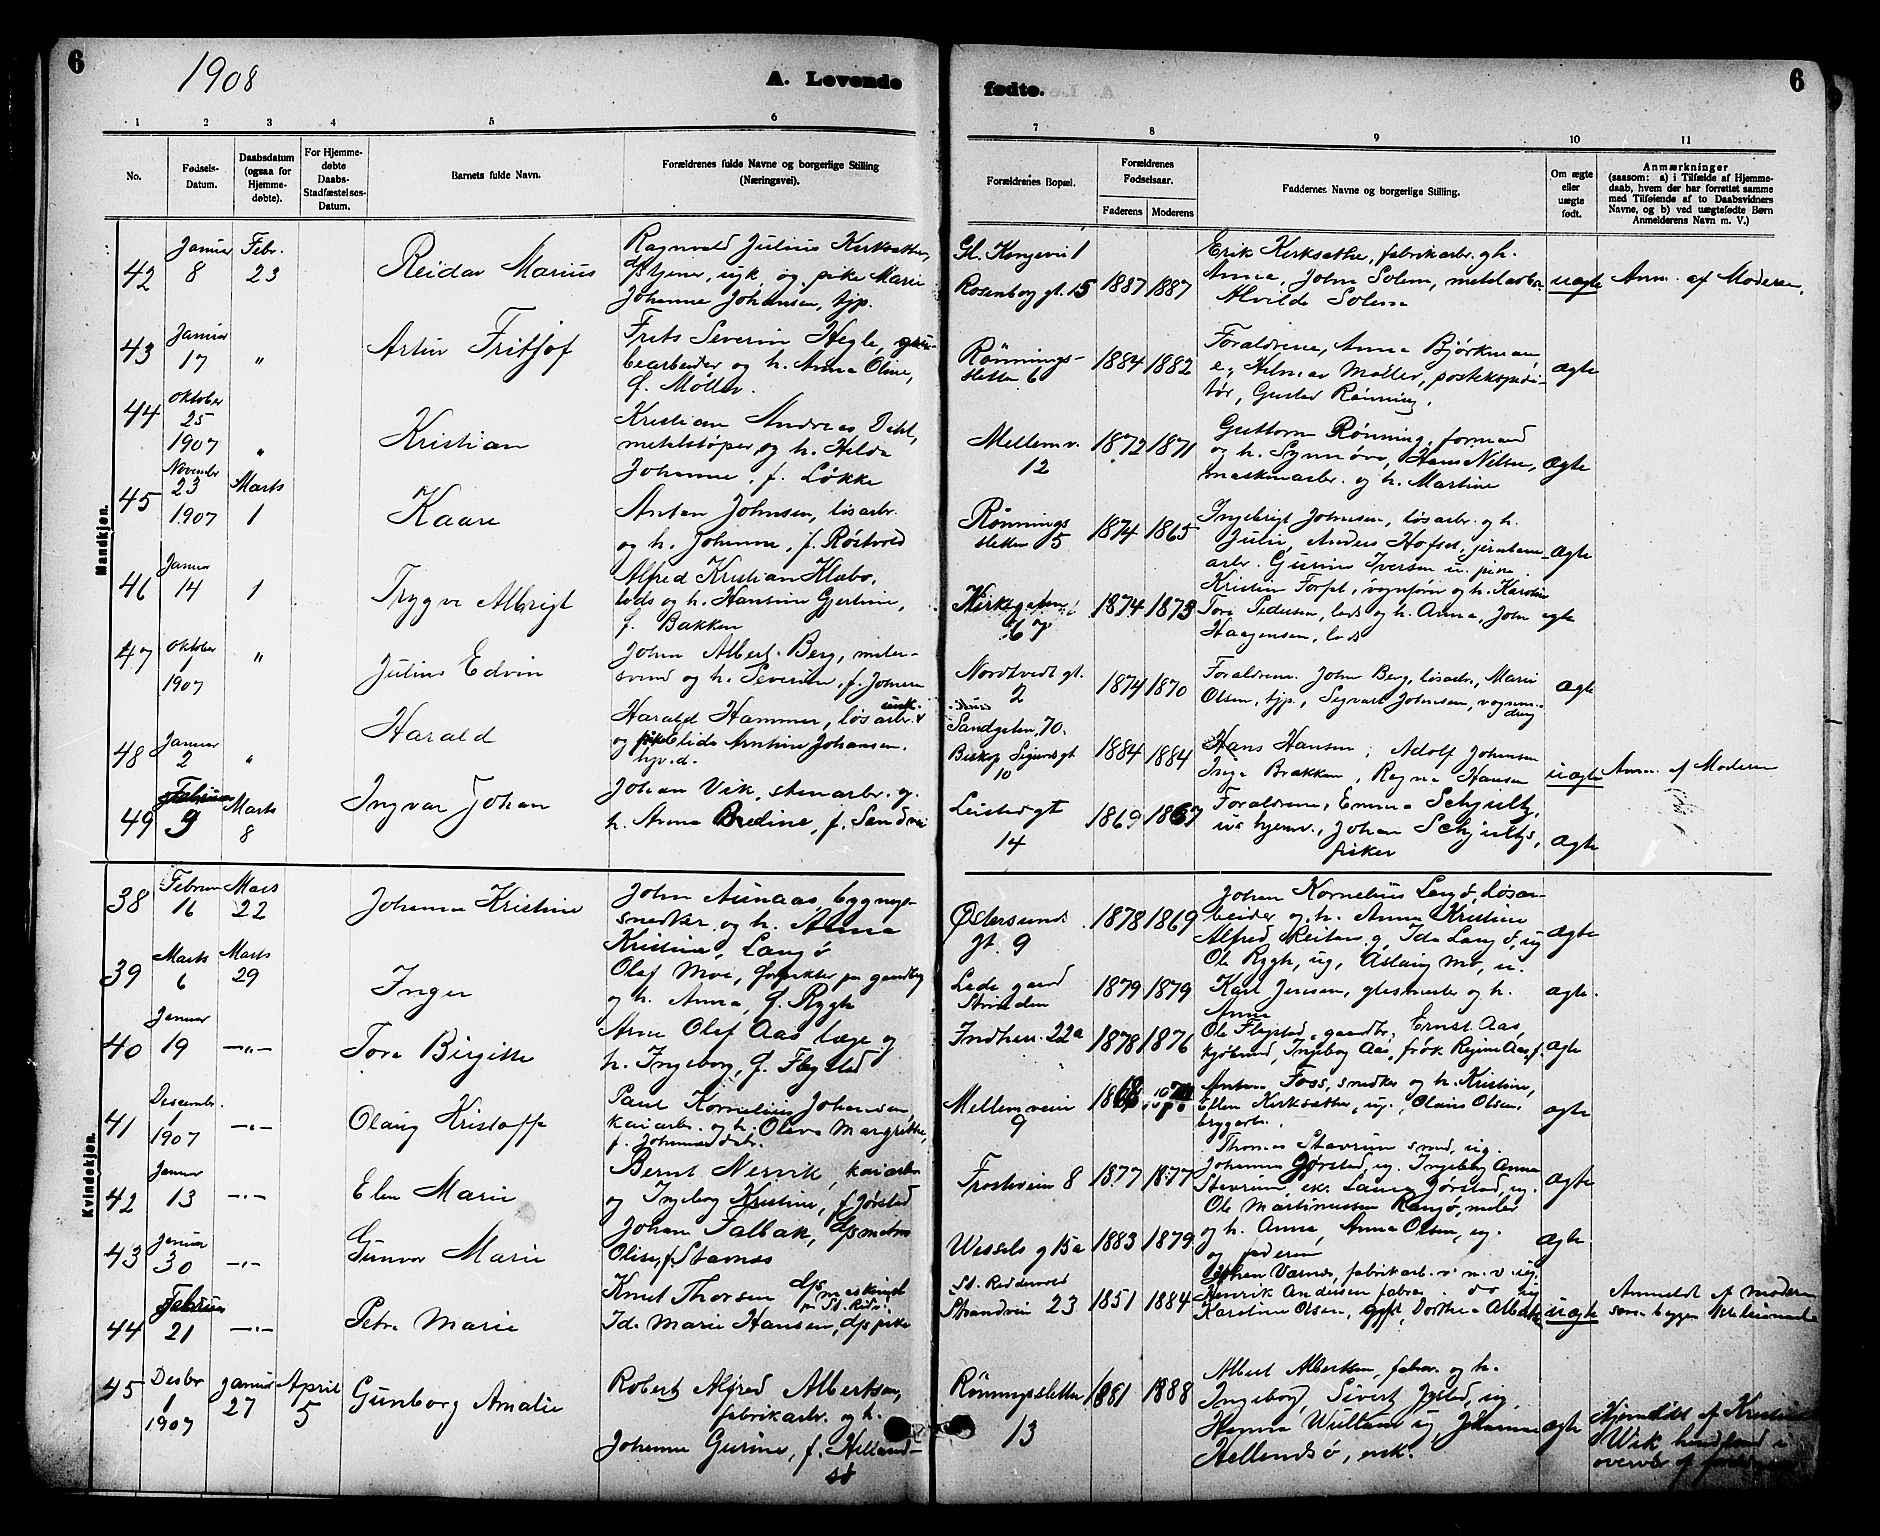 6
1908
A. Levende
fødte.
6
1 2 3 4 5 6 7 8 9 10 11
No.
Fødsels-
Datum.
Daabsdatum
(ogsaa for
Hjemme-
døbte).
For Hjemme-
døbte
Daabs-
Stadfæstelses-
Datum.
Barnets fulde Navn.
Forældrenes fulde Navne og borgerlige Stilling
(Næringsvei).
Forældrenes Bopæl.
Forældrenes
Fødselsaar.
Faderens Moderens
Faddernes Navne og borgerlige Stilling.
Om ægte
eller
uægte
født.
Anmærkninger
(saasom: a) i Tilfælde af Hjemme-
daab, hvem der har forrettet samme
med Tilføiende af to Daabsvidners
Navne, og b) ved uægtefødte Børn
Anmelderens Navn m. V.)
Mandkjøn.
42
Januar
8
Febr.
23
Reidar Marius
Ragnvald Julius Kirksæther,
tjener, ugk. og pike Marie
Johanne Johansen, tjp.
Gl. Kongevei 1
Rosenborg gt. 15
1887 1887
Erik Kirksæther, fabrikarb. og h.
Anna, John Solem, metalarbei
Alvilde Solem
uægte
Anm. af Moderen.
43
Januar
17
"
Artur Fritjof
Frits Severin Hegle,
bearbeider og h. Anna Oline,
f. Møller.
Rønnings-
sletten 6
1884 1882
Forældrene, Anna Bjørkman
e., Hilmar Møller, postekspedi-
tør, Gustav Rønning.
ægte
44
Oktober
25
1907
"
Kristian
Kristian Andreas Dahl,
metalstøper og h. Hilda
Johanne, f. Løkke
Mellemv.
12
1872 1871
Guttorm Rønning, formand
og h. Synnøve, Hans Nilsen,
maskinarb. og h. Martine
ægte
45
November
23
1907
Marts
1
Kaare
Anton Johnsen, løsarb.
og h. Johanne, f. Røstvold
Rønnings
sletten 5
1874 1865
Ingebrigt Johnsen, løsarb. og h.
Julie, Anders Hofset, jernbane-
arb. Gurine Iversen u. pike
ægte
46
Januar
14
1
Trygve Albrigt
Alfred Kristian Klæbo,
lods og h. Hansine Gjertine,
f. Bakken
Kirkegaten
67
1874 1873
Kristian Forset, vognfører og h. Karoline
Tore Pedersen, lods og h. Anna, John
Haagensen, lods
ægte
47
Oktober
1
1907
"
Julius Edvin
John Albert Berg, maler-
svend og h. Severine, f. Johnsen
Nordtvedt gt.
2
1874 1870
Forældrene. John Berg, løsarb., Marie
Olsen, tjp., Sigvart Johnsen, vognm.
dreng
ægte
48
Januar
2
"
Harald
Harald Hammer, løsarb. unk.
og pike Elida Arntine Johansen.
hjv. d.
Sandgaten, 70.
Biskop Sigurds gt
10
1884 1884
Hans Hansen, Adolf Johansen
Inga Brækken, Ragna Hansen
uægte
Anm. af Moderen
49
Februar
9
Marts
8
Ingvar Johan
Johan Vik, stenarb. og
h. Anna Bredine, f. Sandvik
Leistad gt
14
1869 1867
Forældrene, Emma Schjultz,
u. hjemv., Johan Schjultz,
fisker
ægte
Kvindekjøn.
38
Februar
16
Mars
22
Johanna Kristine
John Aunaas, bygnings-
snedker og h. Anna
Kristine, Langø
Østersunds
gt. 9
1878 1869
Johan Kornelius Langø, Løsar-
beider og h. Anna Kristine
Alfred Reitan g, Ida Langø, ug
Ole Rygh, ug, Aslaug Mo, u.
ægte
39
Marts
6
Marts
29
Inger
Olaf Moe, forpakter på gaardbrug
og h. Anna, f. Rygh
Lade gaard
Strinden
1879 1879
Karl Jensen, glasmester og h.
Anna
ægte.
40
Januar
19
—"—
Tora Birgitte
Arne Olaf Aas læge og
h. Ingeborg, f. Flegstad
Indhere. 22a
1878 1876
Ole Flegstad, gaardbr. Ernst Aas,
kjøbmd, Ingeborg Aas, frøk. Regine Aas, f.
ægte
41
Desembr.
1
1907
—"—
Olaug Kristoffa
Paul Kornelius Johansen,
kaiarb. og h. Oleva Margrethe,
f. Johansdatr.
Mellemveien
9
Anton Foss, snedker og h. Kristine,
Ellen Kirksæther, ug., Olaus Olsen,
bryggarb.
ægte
42
Januar
13
—"—
Elen Marie
Bernt Nervik, kaiarb.
og Ingeborg Kristine, f. Jørstad
Frostaveien 8
1877 1877
Thomas Stavrum smed, ug.
Johanna Jørstad, ug. Ingeborg Anna
Stavrum, enk. Laura Jørstad, ug.
ægte
43
Januar
30
—"—
Gunvor Marie
Johan Falbak, dpsmatros
Olise, f. Stavnæs
Wessels g 15a
1883 1879
Ole Martinussen Rangø, maler
og h. Anna, Anna Olsen, ug.
og faderen
ægte
44
Februar
21
—"—
Petra Marie
Knut Thorsen dps maskinist
Ida Marie Hansen, dps pike
Strandvein 23
1851 1884
Johan Værnes, fabrikarb. v. m. v. ug.
Henrik Andersen fabra. do ug
Karoline Olsen, gift, Dorthea Albertsen
uægte
Anmeldt af moderen
som begges
45
Desbr
1
1907
Januar
27
April
5
Gunborg Amalie
Robert Alfred Albertsen,
fabrikarb. og h.
Johanne Gurine, f. Helland-
sø
Rønningsletten
13
1881 1888
Albert Albertsen, fabra. og h.
Ingeborg, Sivert Jystad, ug,
Hanna Wullum ug, Johanna
Hellandsø, enk.
ægte
Hjemdøbt af Kristine
Wik
overvær af